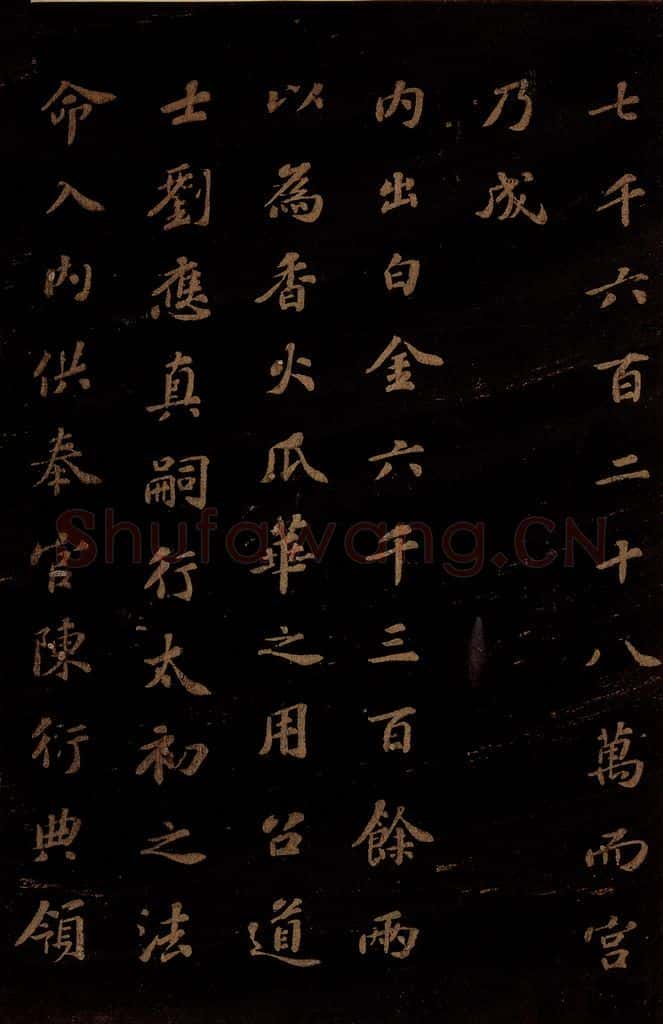 七千六百二十八萬而宮
乃成
内出白金六千三百餘兩
以為香火瓜華之用召道
士劉應真嗣行太初之法
命入内供奉官陳衍典領
Shufawang.CN